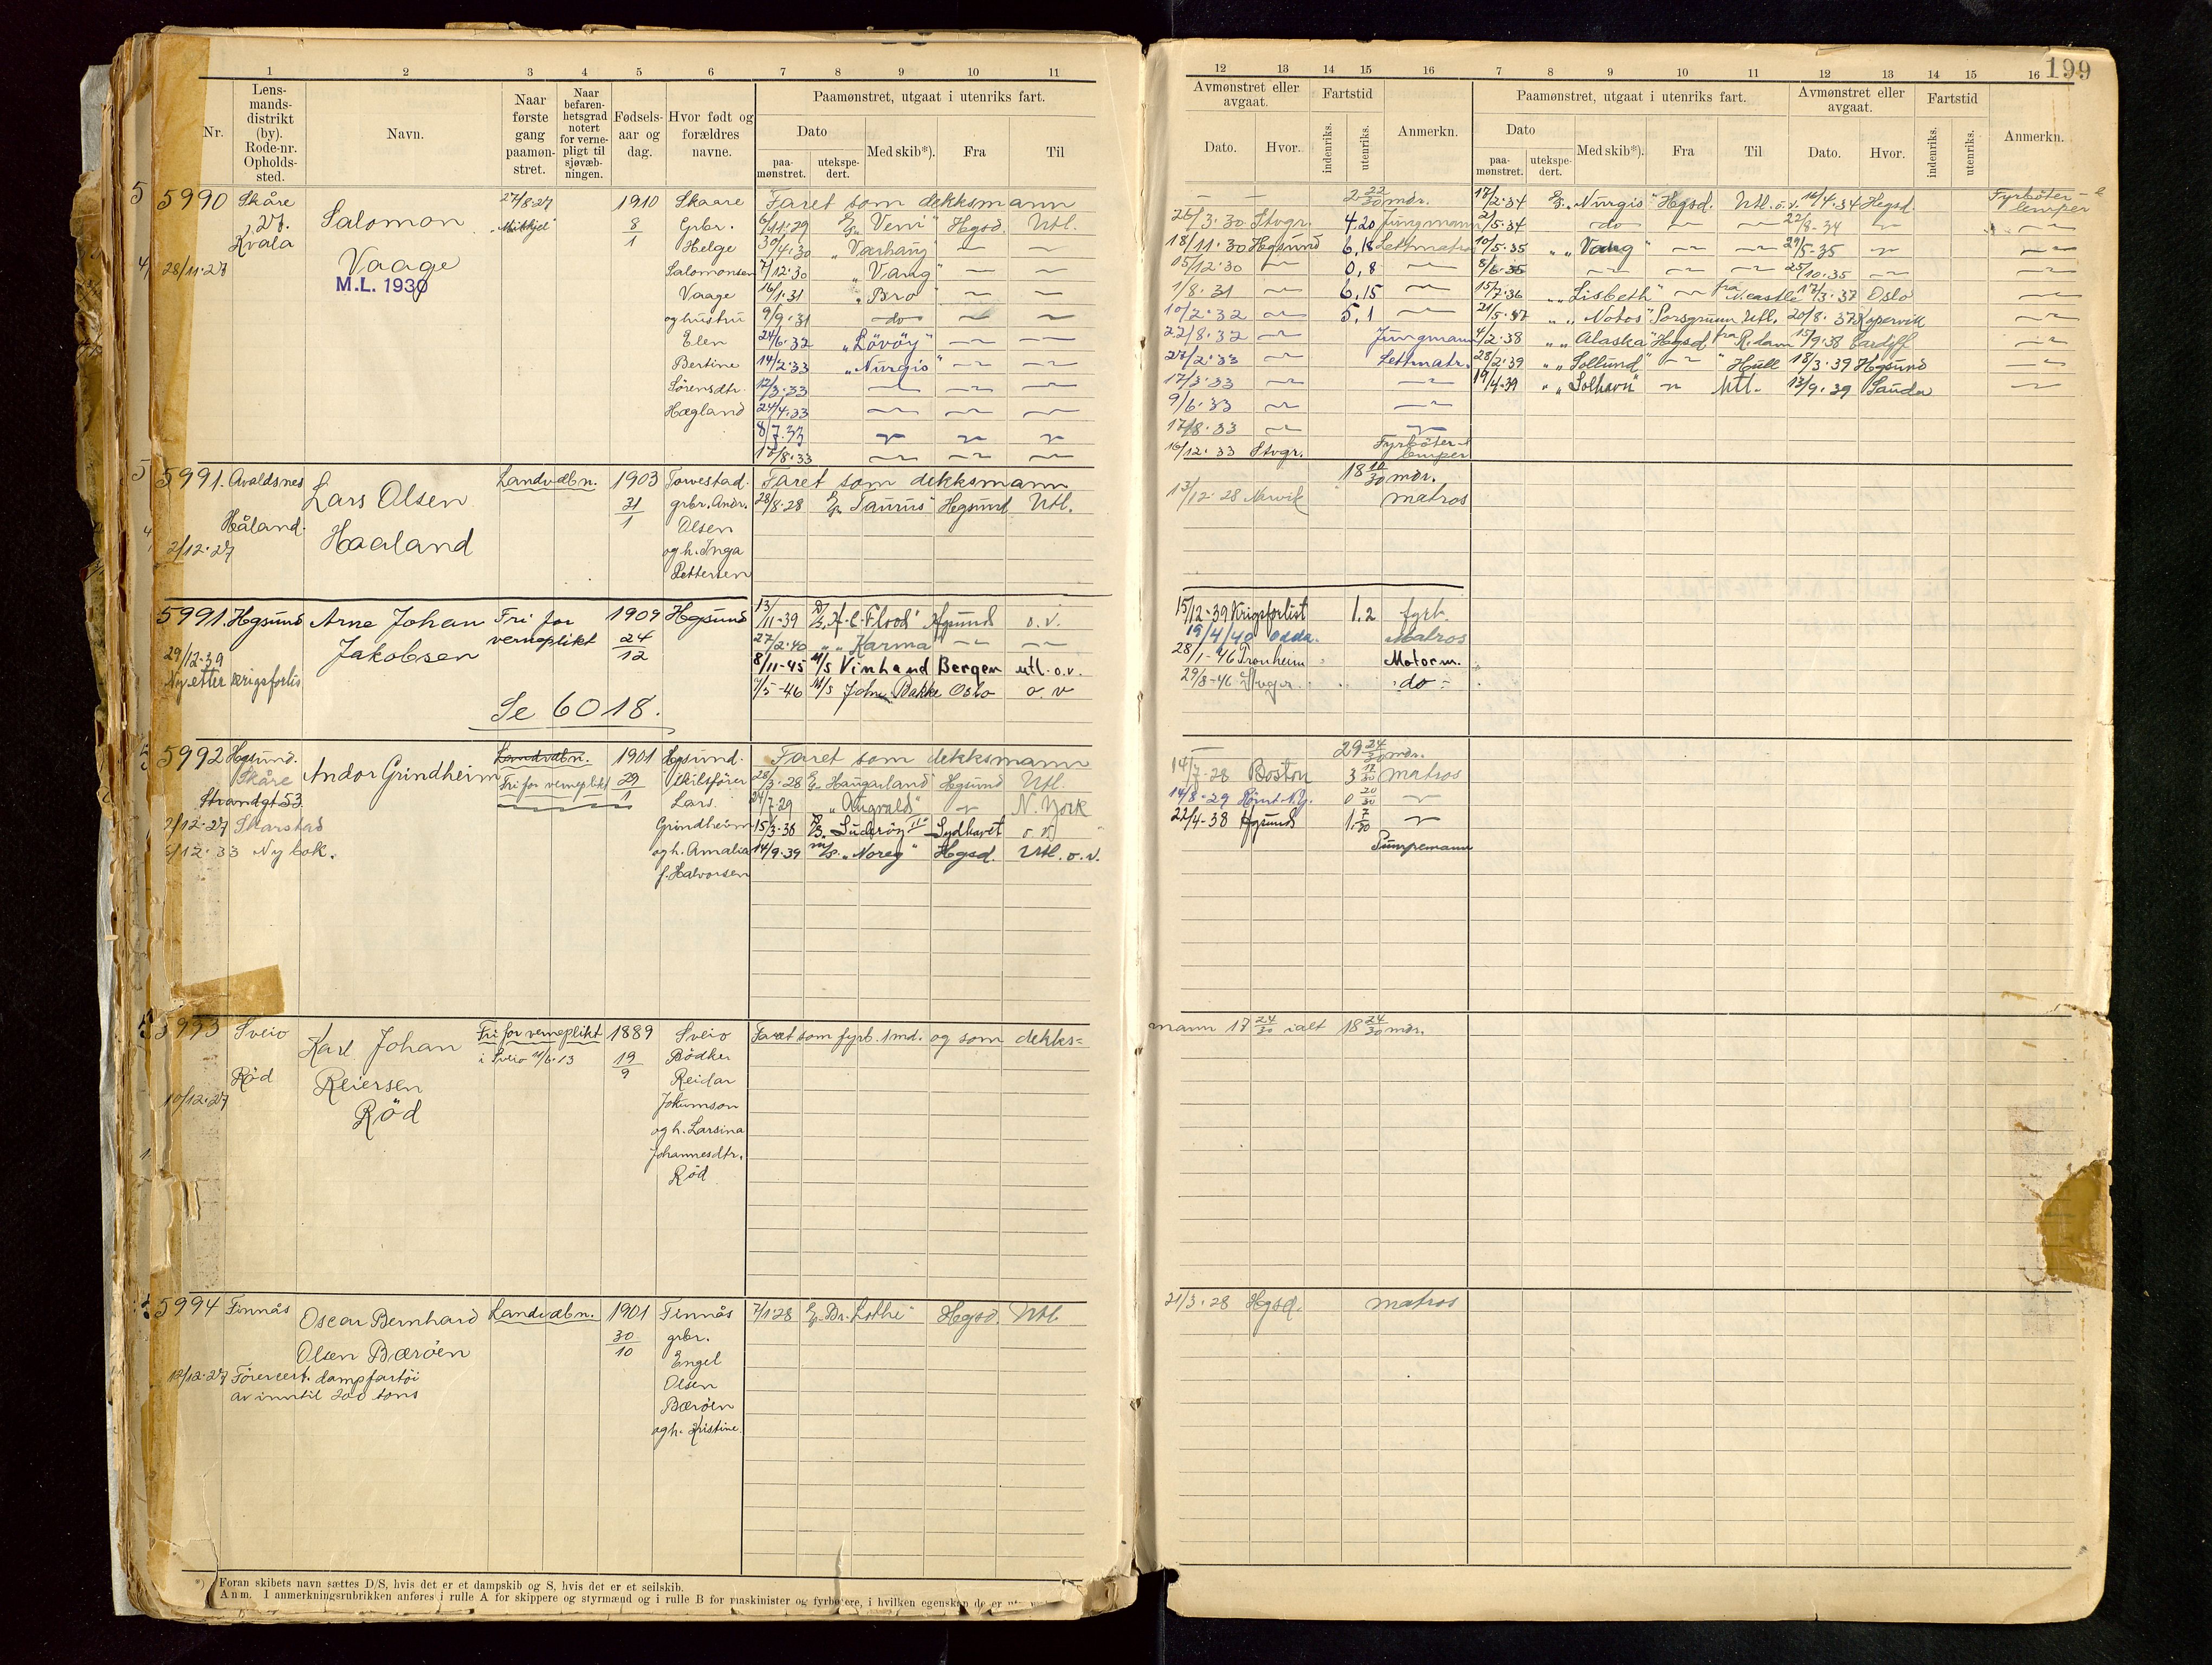 199
1 2 3 4 5 6 7 8 9 10 11
Nr.
Lens-
mands-
distrikt
(by).
Rode-nr.
Opholds-
sted.
Navn.
Naar
første
gang
paamøn-
stret.
Naar
befaren-
hetsgrad
notert
for verne-
pligt til
sjøvæb-
ningen.
Fødsels-
aar og
dag.
Hvor født og
forældres
navne.
Paamønstret, utgaat i utenriks fart.
Dato
paa-
mønstret.
utekspe-
dert.
Med skib*).
Fra
Til
12 13 14 15 16 7 8 9 10 11 12 13 14 15 16
Avmønstret eller
avgaat.
Dato.
Hvor.
Fartstid
indenriks.
utenriks.
Anmerkn.
Paamønstret, utgaat i utenriks fart.
Dato
paa-
mønstret.
utekspe-
dert.
Med skib*).
Fra
Til
Avmønstret eller
avgaat.
Dato.
Hvor.
Fartstid
indenriks.
utenriks.
Anmerkn.
5990 Skåre 27/8.27 1910 Skaare Faret som dekksmann
Kvala Salomon 8/1 Grbr. 6/11.29 Hgsd. Utl.
28/11.27 Vaage Helge 30/4.30 "Værhaug"
M.L. 1930 Salomonsen 7/12.30 "Varg"
Vaage 16/1.31 "Bro"
og hustru 9/9.31 do
Elen 24/6.32 "Lövöy"
Bertine 14/2.33 "Nurgis"
Sörensdtr. 17/3.33
Hægland 24/4.33
8/7.33
17/8.33
2 22/30 mdr.
26/3.30 Stvgr. 4.20 Jungmann
18/11.30 Hegsund 6.18 Lettmatr.
15/12.30 0.8
1/8.31 6.15
10/2.32 5.1
22/8.32 Jungmann
27/2.33 Lettmatr.
17/3.33
9/6.33
17/8.33
16/12.33 Stvgr. Fyrböter-
lemper
17/2.34 "Nurgis" Hgsd. Utl. o.v. 16/4.34 Hegsd. Fyrböter-
lemper
21/5.34 do 22/8-34
10/5.35 " Varg 29/5-35
8/6.35 25/10.35
15/7.36 " Lisbeth" fra N.castle 17/3.37 Oslo
21/5.37 " Notos" Porsgrunn Utl. 20/8.37 Kopervik
4/2.38 " Alaska" Hgsd. fra R.dam 15/9.38 Cardiff
28/2.39 " Sollund" " Hull 18/3.39 Hgsund
19/4.39 " Solhavn" Utl. 13/9.39 Sauda
5991. Avaldsnes Lars Olsen Landvæbn. 1903 Torvestad. Faret som dekksmann
Håland. Haaland 31/1 grbr. Andr. 28/8.28 "Taurus" Hgsund Utl.
2/12.27 Olsen
og h. Inga
Pettersen
18 10/30 mdr.
13/12.28 Narvik matros
5991. Hgsund Arne Johan Fri for 1909 Hegsund 13/11-39 A.C. Flood" Hgsund o.v.
29/12-39 Jakobsen verneplikt 24/12 27/2.40 " Karma
Ny etter krigsforlis 8/11-45 M/S Vinland Bergen utl. o.v.
7/5-46 M/S John Bakke Oslo o.v
Se 6018.
15/12-39 Krigsforlist 1.2 fyrb.
19/4/40 Odda. Matros
28/1-46 Tronheim Motorm.
29/8-46 Stvgr. do
5992 Hgsund. Andor Grindheim Landvæbn. 1901 Hgsund. Faret som dekksmann
Skåre Fri for verneplikt 29/1 Skibsfører 28/3.28 Haugarland" Hgsund Utl.
Strandgt 53. Lars. 24/7.29 "Augvald" N. York
2/12.27 Skarstad Grindheim 15/3-38 Suderöy II" Sydhavet o.v
6/12.33 Ny bok. og h. Amalia 14/9.39 "Noreg" Hgsd. Utl. o.v.
f. Halvorsen
29 24/30 mdr.
14/7.28 Boston 3 17/30 matros
14/8.29 0 20/30
22/4-38 Hgsund 1. 7/30
Pumpemann
5993 Sveio Karl Johan Fri for verneplikt 1889 Sveio Faret som fyrb. 1 md. og som dekks=
Röd Reiersen i Sveio 11/6.13 19/9 Bödker
10/12.27 Röd Reidar
Jokumson
og h. Larsina
Johannesdtr.
Röd
mann 17 24/30 ialt 18 24/30 mdr.
5994 Finnås Oscar Bernhard Landvæbn. 1901 Finnås 7/1.28 Dr. Lothe" Hegsd. Utl
Olsen Bæröen 30/10 grbr.
17/12.27 Förercert. dampfartöi Engel
av inntil 200 tons Olsen
Bæröen
og h. Kristine.
21/3.28 Hgsd. matros
*) Foran skibets navn sættes D/S, hvis det er et dampskib og S, hvis det er et seilskib.
Anm. I anmerkningsrubrikken anføres i rulle A for skippere og styrmænd og i rulle B for maskinister og fyrbøtere, i hvilken egenskap de er